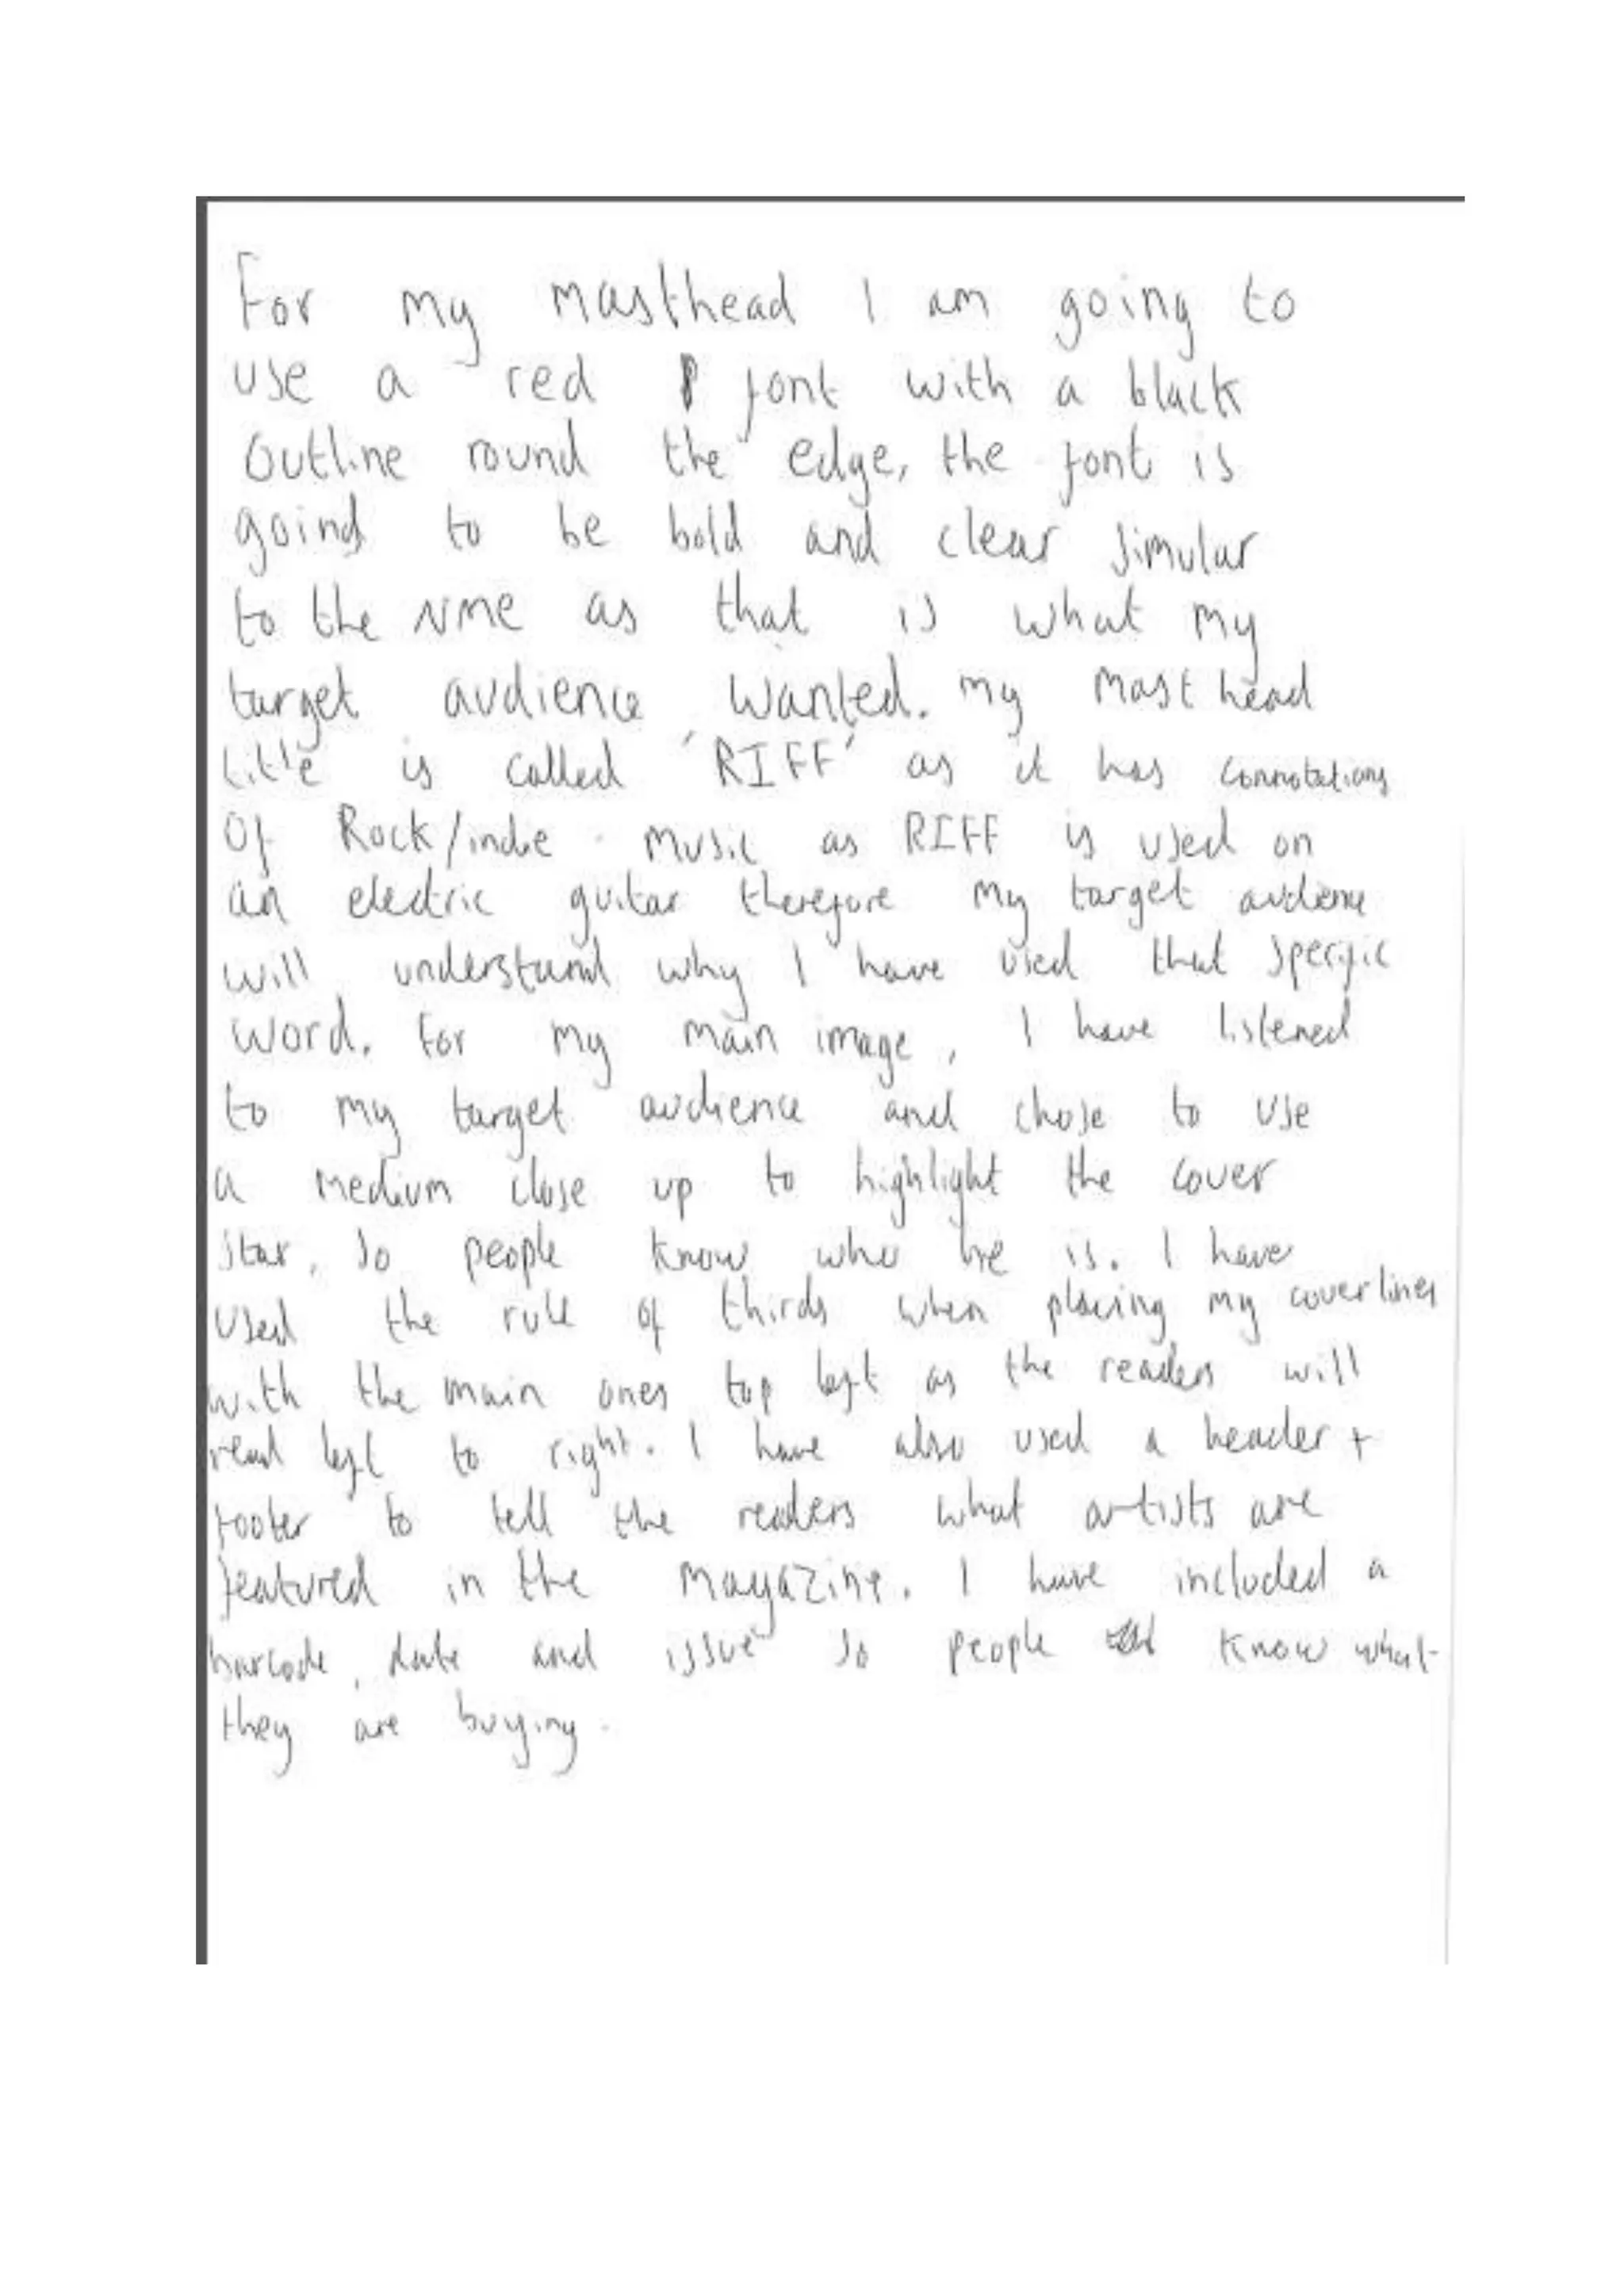 For my masthead I am going to
use a red font with a black
outline round the edge, the font is
goind to be bold and clear simular
to the NME as that is what my
target audience wanted. my masthead
title is called 'RIFF' as it has connotations
Of Rock/indie music as RIFF is used on
an electric guitar therefore my target audience
will understand why I have used that specific
word. For my main image, I have listened
to my target audience and chose to use
a medium close up to highlight the cover
star, so people know who he is. I have
used the rule of thirds when placing my coverlines
with the main ones top left as the readers will
read left to right. I have also used a header +
footer to tell the readers what artists are
featured in the magazine. I have included a
barcode, date and issue so people know what
they are buying.